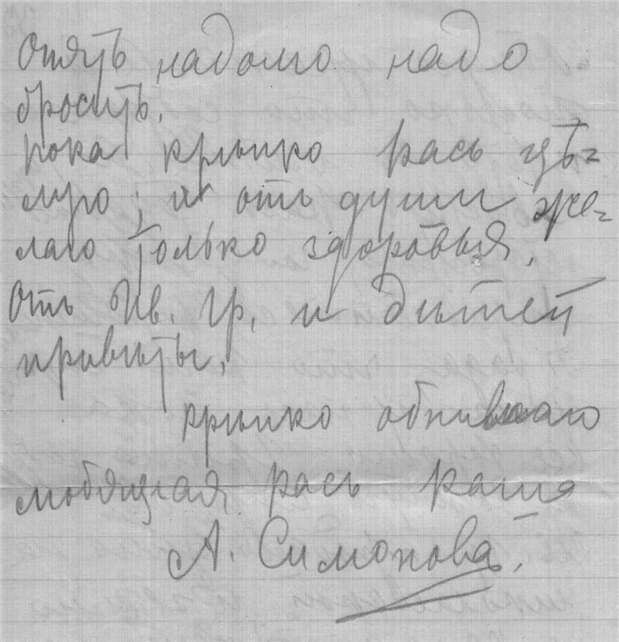 Опять надолго надо
бросить.
Пока крѣпко васъ цѣ=
лую, и отъ души же=
лаю только здоровья.
Отъ Ив. Гр. и дѣтей
привѣты.
Крѣпко обнимаю
любящая васъ ваша
А. Симонова.